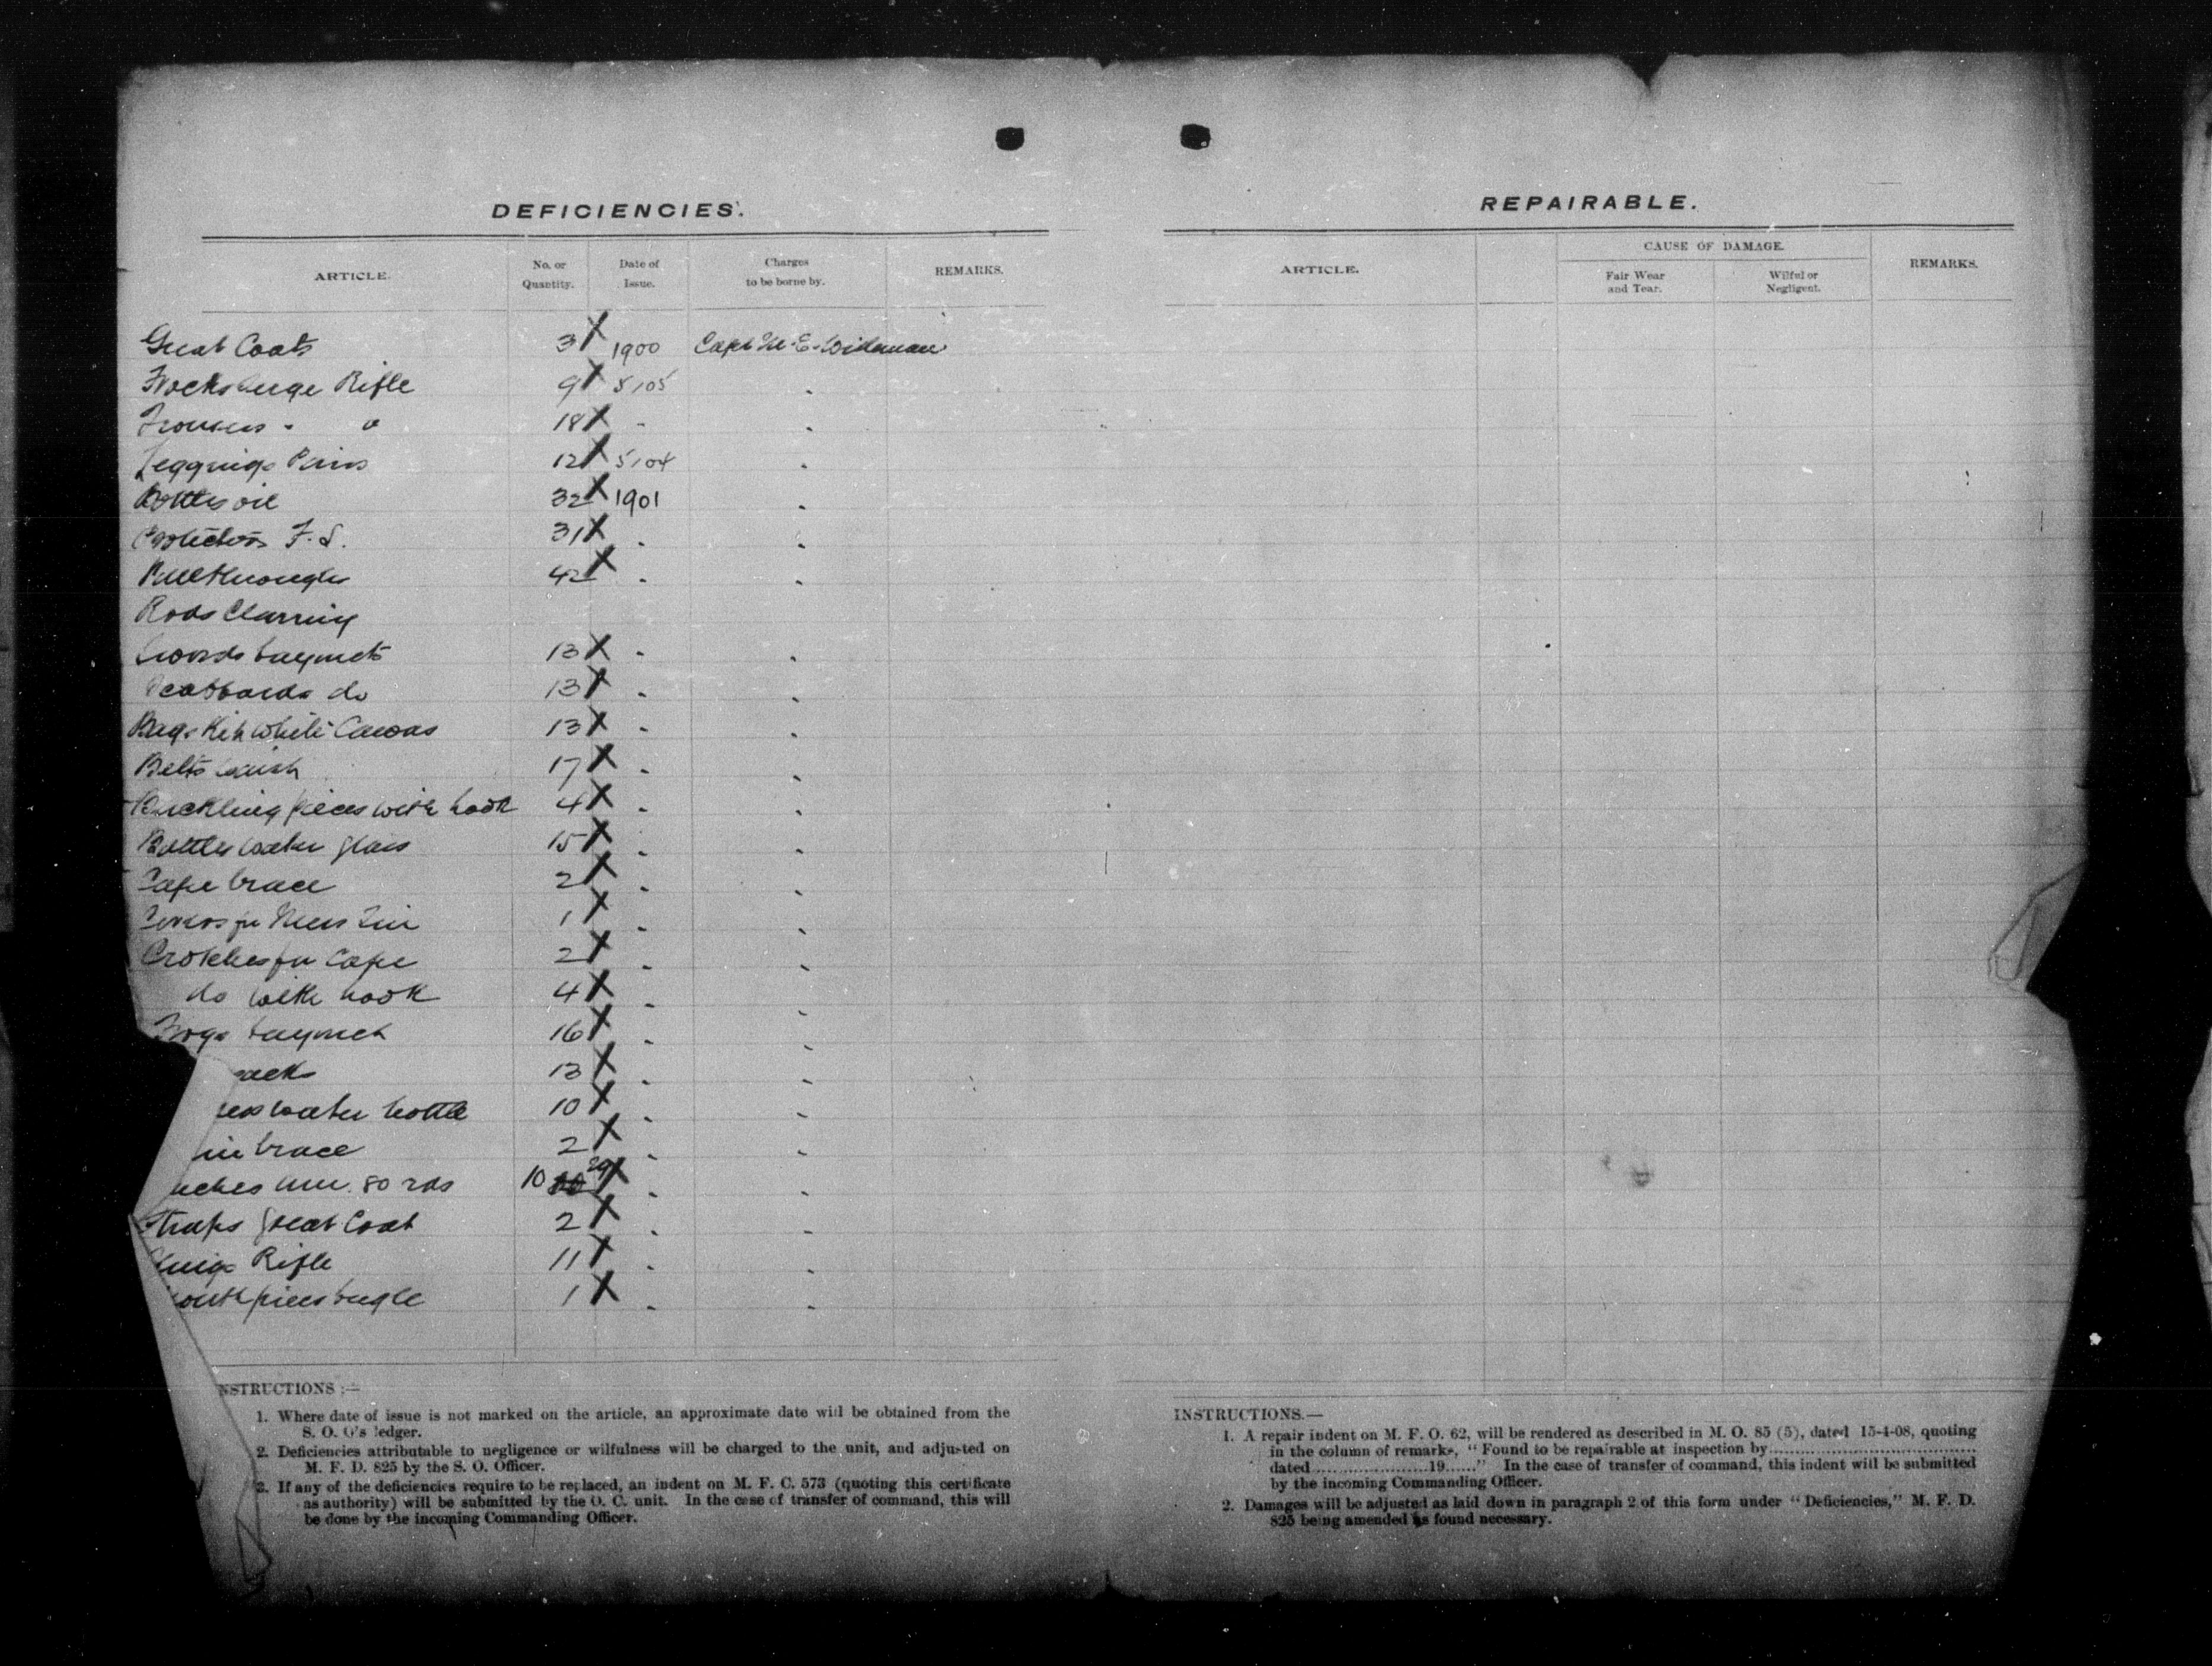 DEFICIENCIES.
ARTICLE. No. or Quantity. Date of Issue. Charges to be borne by. REMARKS.
Great Coats 3 X 1900 Capt M. E. Wideman
Frocks Serge Rifle 9 X 5/05 "
Trousers " " 18 X " "
Leggings Pairs 12 X 5/04 "
Bottles oil 32 X 1901 "
Protectors F.S. 31 X " "
Pullthroughs 42 X " "
Rods Cleaning
Swords bayonets 13 X " "
Scabbards do 13 X " "
Bags Kit White Canvas 13 X " "
Belts waist 17 X " "
Buckling pieces with hook 4 X " "
Bottles water glass 15 X " "
Cape brace 2 X " "
for Mess Tin 1 X " "
Crotches for Cape 2 X " "
do with hook 4 X " "
Frogs bayonet 16 X " "
sacks 13 X " "
water bottle 10 X " "
brace 2 X " "
uches Am. 80 rds 10 29 X " "
Straps Great Coat 2 X " "
Slings Rifle 11 X " "
outh pieces bugle 1 X " "
NSTRUCTIONS :—
1. Where date of issue is not marked on the article, an approximate date will be obtained from the
S. O. O's ledger.
2. Deficiencies attributable to negligence or wilfulness will be charged to the unit, and adjusted on
M. F. D. 825 by the S. O. Officer.
3. If any of the deficiencies require to be replaced, an indent on M. F. C. 573 (quoting this certificate
as authority) will be submitted by the O. C. unit. In the case of transfer of command, this will
be done by the incoming Commanding Officer.
REPAIRABLE.
ARTICLE. CAUSE OF DAMAGE. REMARKS.
Fair Wear and Tear. Wilful or Negligent.
INSTRUCTIONS.—
1. A repair indent on M. F. O. 62, will be rendered as described in M. O. 85 (5), dated 15-4-08, quoting
in the column of remarks, "Found to be repairable at inspection by....................
dated....................19......" In the case of transfer of command, this indent will be submitted
by the incoming Commanding Officer.
2. Damages will be adjusted as laid down in paragraph 2 of this form under "Deficiencies," M. F. D.
825 being amended as found necessary.